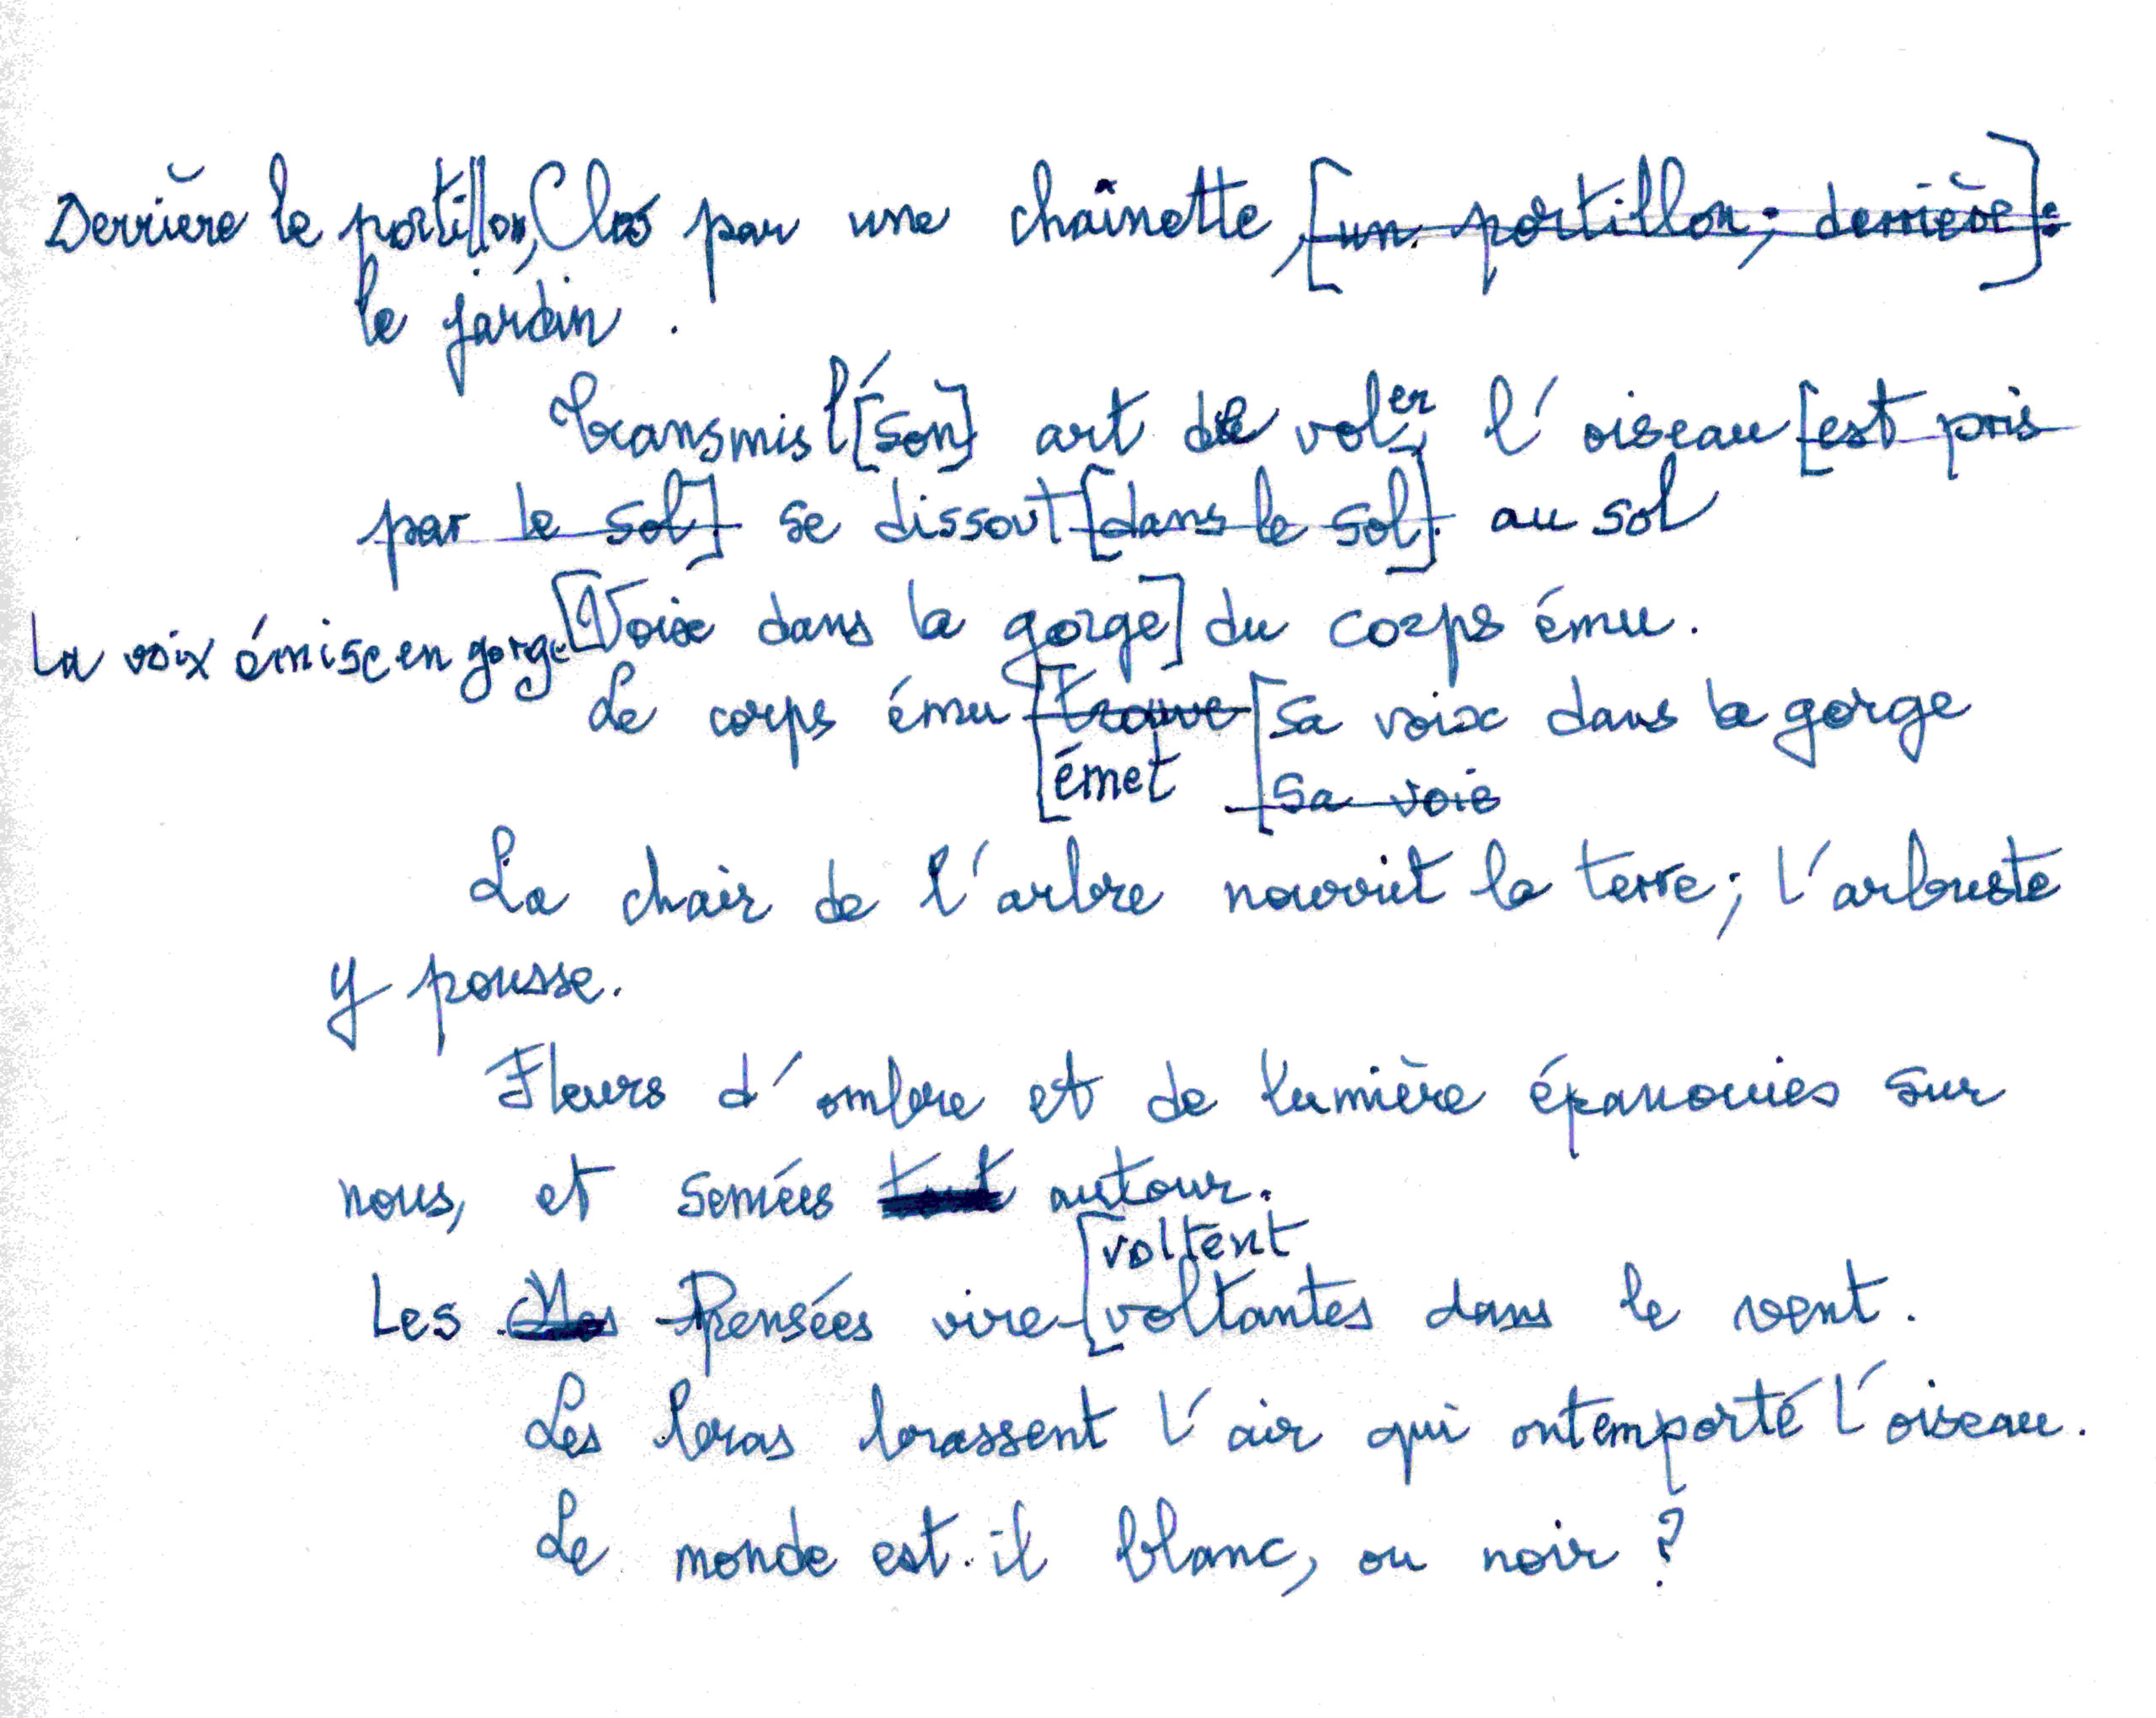 Derrière le portillon, Clos par une chaînette, [un portillon ; derrière] :
le jardin .
Transmis l'[son] art de voler, l'oiseau [est pris
par le sol] se dissout [dans le sol]. au sol
La voix émise en gorge [Voix dans la gorge] du corps ému.
Le corps ému [trouve [sa voix dans la gorge
[émet [sa voie
La chair de l'arbre nourrit la terre ; l'arbuste
y pousse.
Fleurs d'ombre et de lumière épanouies sur
nous, et semées tout autour.
[voltent
Les Mes Pensées vire-[voltantes dans le vent.
Les bras brassent l'air qui ont emporté l'oiseau.
Le monde est-il blanc, ou noir ?